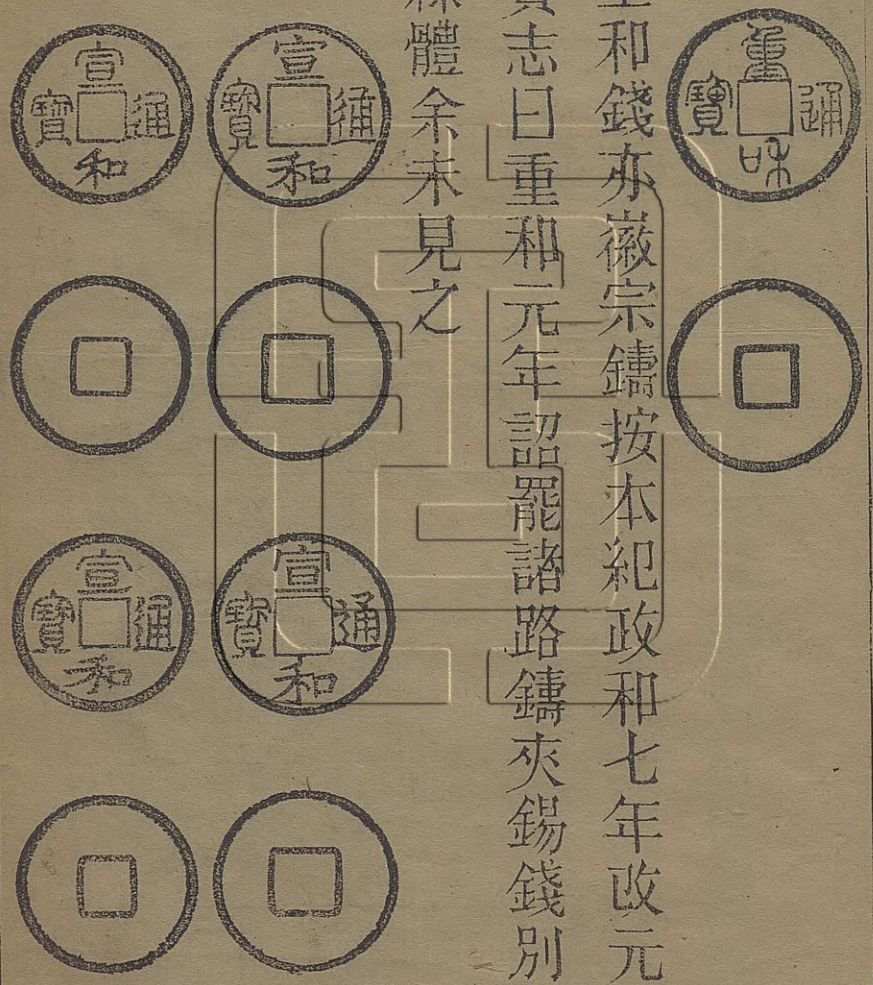 重和通寶
和錢亦徽宗鑄按本紀政和七年改元
志曰重和元年詔罷諸路鑄夾錫錢別
體余未見之
宣和通寶
宣和通寶
宣和通寶
宣和通寶